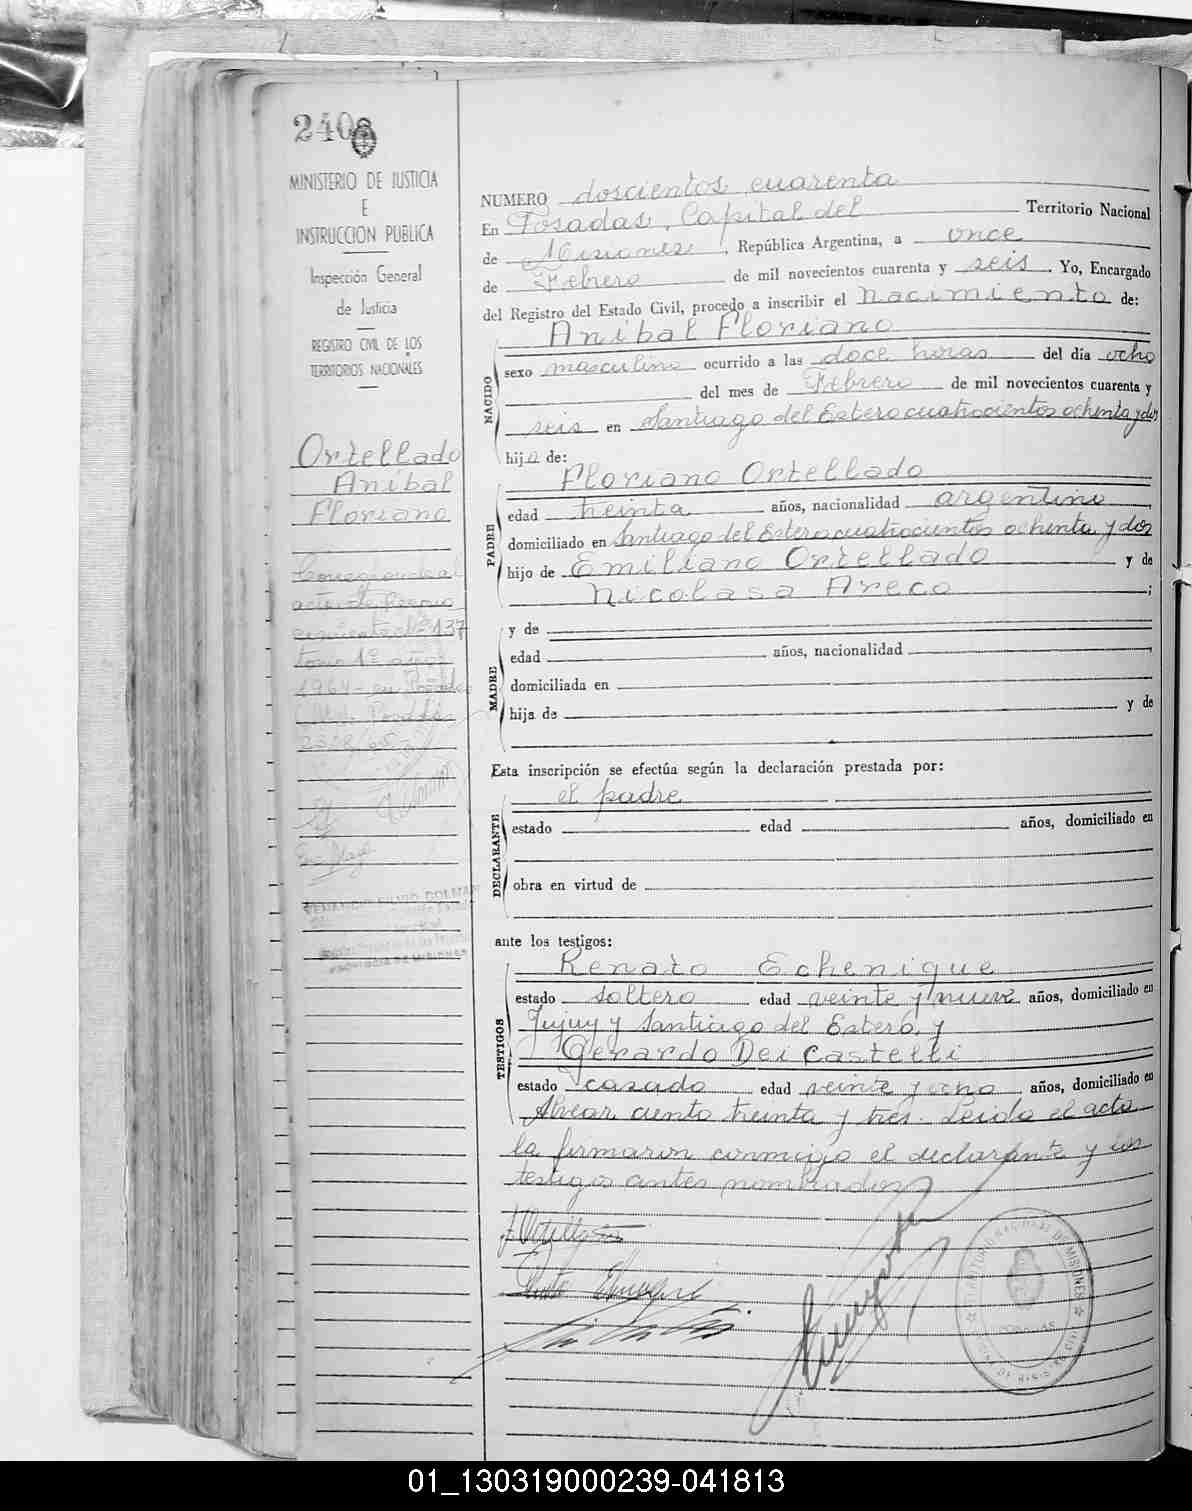 240
MINISTERIO DE JUSTICIA
E
INSTRUCCION PUBLICA
Inspección General
de Justicia
REGISTRO CIVIL DE LOS
TERRITORIOS NACIONALES
Ortellado
Anibal
Floriano
1964 - en Posadas
PROVINCIA DE MISIONES
NUMERO doscientos cuarenta
En Posadas, Capital del Territorio Nacional
de Misiones, República Argentina, a once
de Febrero de mil novecientos cuarenta y seis. Yo, Encargado
del Registro del Estado Civil, procedo a inscribir el nacimiento de:
Anibal Floriano
NACIDO
sexo masculino ocurrido a las doce horas del día ocho
del mes de Febrero de mil novecientos cuarenta y
seis en Santiago del Estero cuatrocientos ochenta y dos
hijo de:
Floriano Ortellado
PADRE
edad treinta años, nacionalidad argentino,
domiciliado en Santiago del Estero cuatrocientos ochenta y dos
hijo de Emiliano Ortellado y de
Nicolasa Areco;
y de
MADRE
edad años, nacionalidad
domiciliada en
hija de y de
Esta inscripción se efectúa según la declaración prestada por:
el padre
DECLARANTE
estado edad años, domiciliado en
obra en virtud de
ante los testigos:
Renato Echenique
TESTIGOS
estado soltero edad veinte y nueve años, domiciliado en
Jujuy y Santiago del Estero y
Gerardo Dei Castelli
estado casado edad veinte y ocho años, domiciliado en
Alvear ciento treinta y tres. Leida el acta
la firmaron conmigo el declarante y los
testigos antes nombrados
POSADAS
01_130319000239-041813